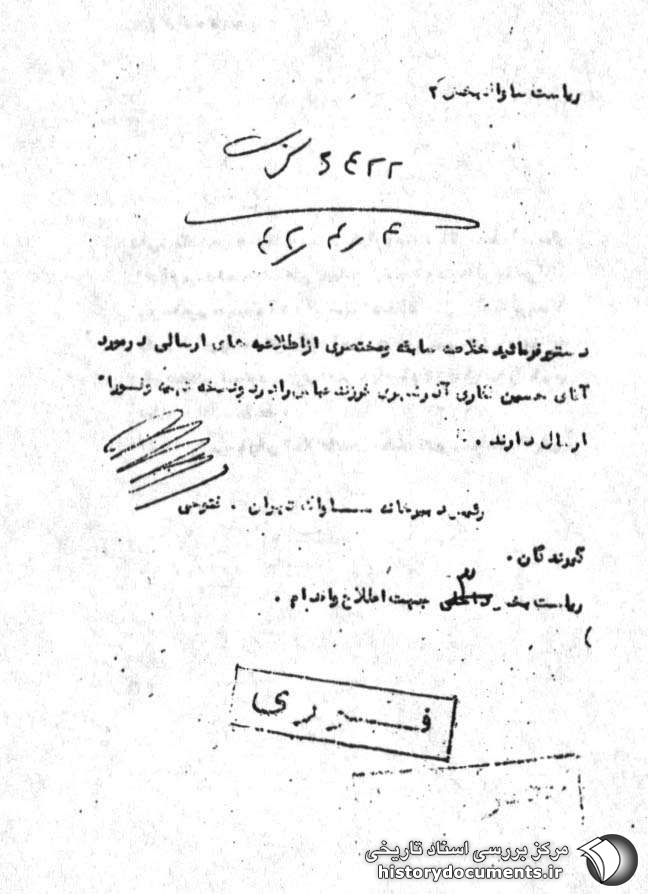 ریاست ساواک بخش ۲
۴۲۲
۴ ر ۴ ر ۴۲
دستور فرمائید خلاصه سابقه ومختصری ازاطلاعیه های ارسالی درمورد
آقای حسین غفاری آذرشهری فرزند عباس رادردونسخه تهیه وفورا"
ارسال دارند .
رئیس دبیرخانه ساواک تهران . فتوحی
گیرندگان .
ریاست بخش ۳ داخلی جهت اطلاع واقدام .
فوری
مرکز بررسی اسناد تاریخی
historydocuments.ir